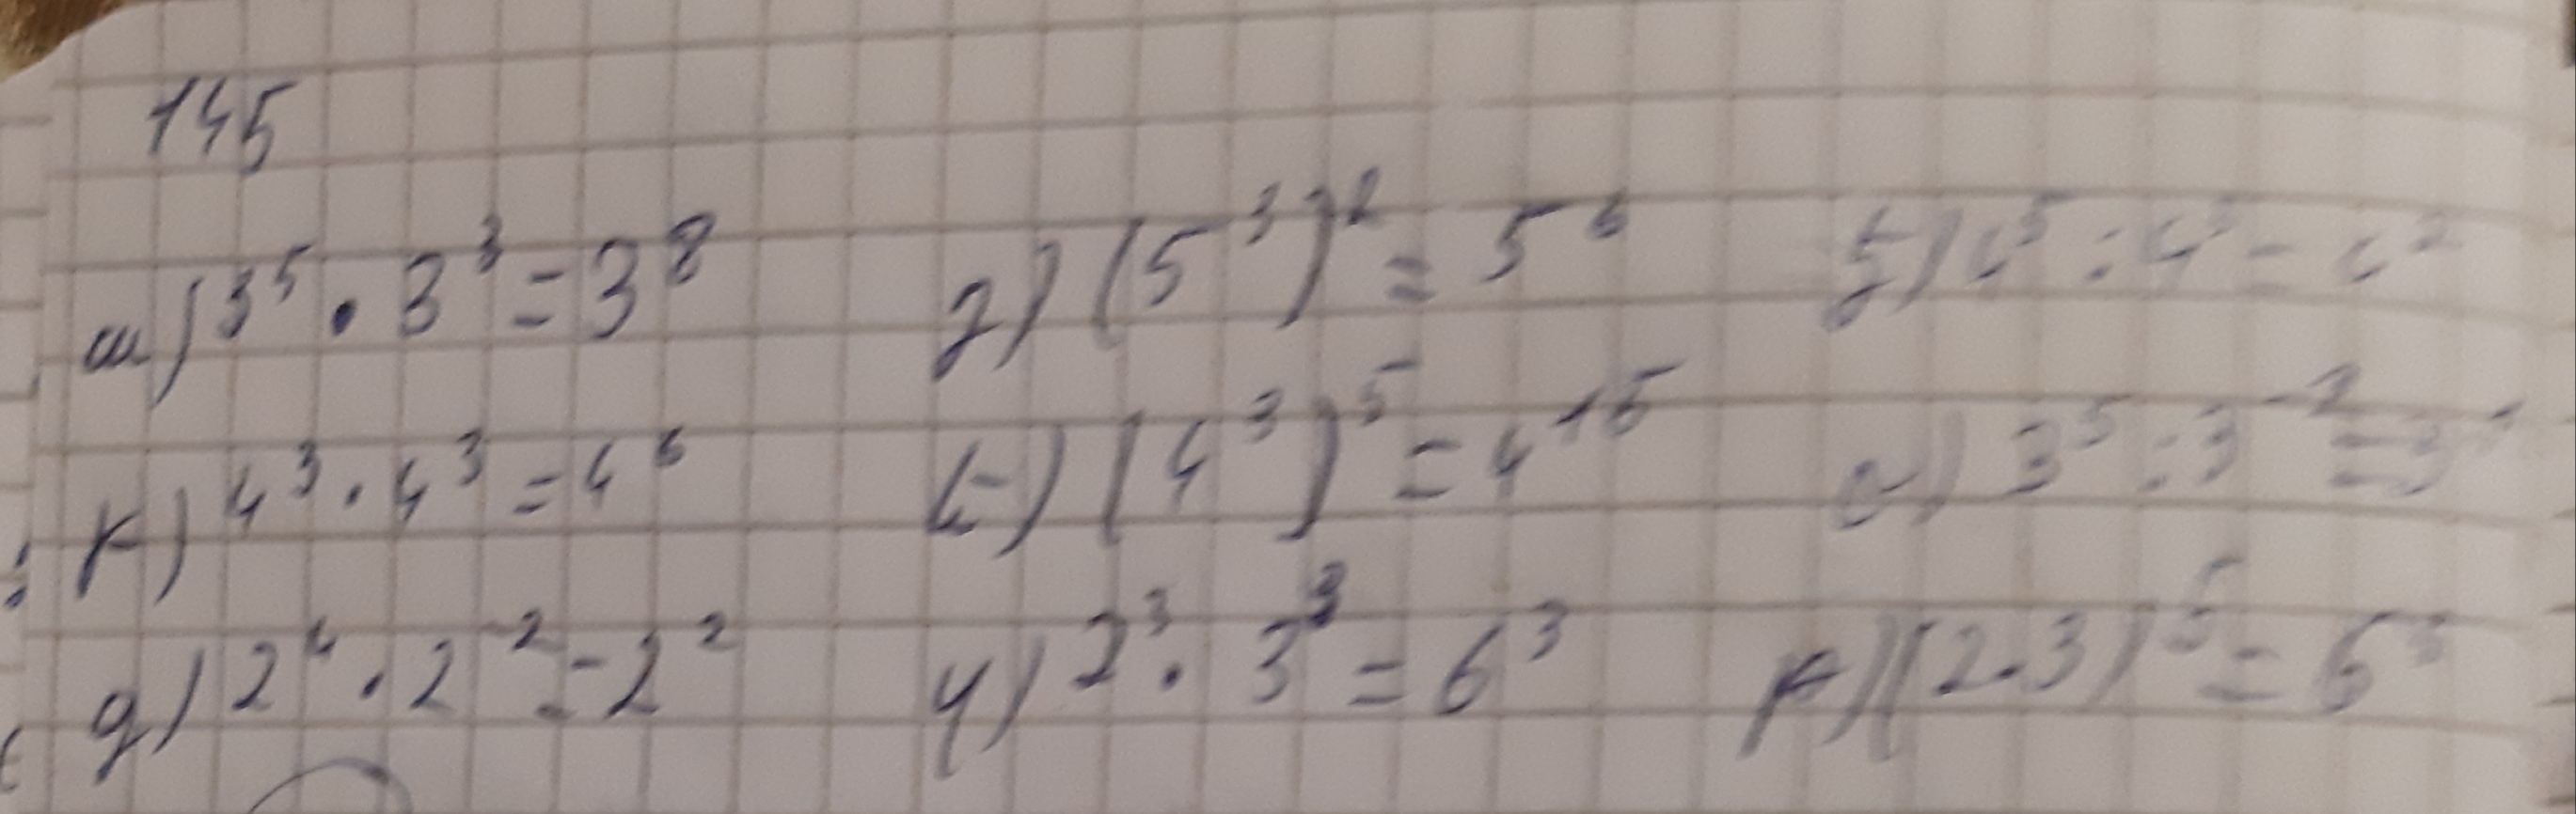 145
ա) 3⁵ · 3³ = 3⁸
բ) 4³ · 4³ = 4⁶
գ) 2⁴ · 2⁻² = 2²
դ) (5³)² = 5⁶
ե) (4³)⁵ = 4¹⁵
զ) 2³ · 3³ = 6³
4⁵ : 4³ = 4²
3⁵ : 3⁻² = 3⁷
(2 · 3)⁵ = 6⁵